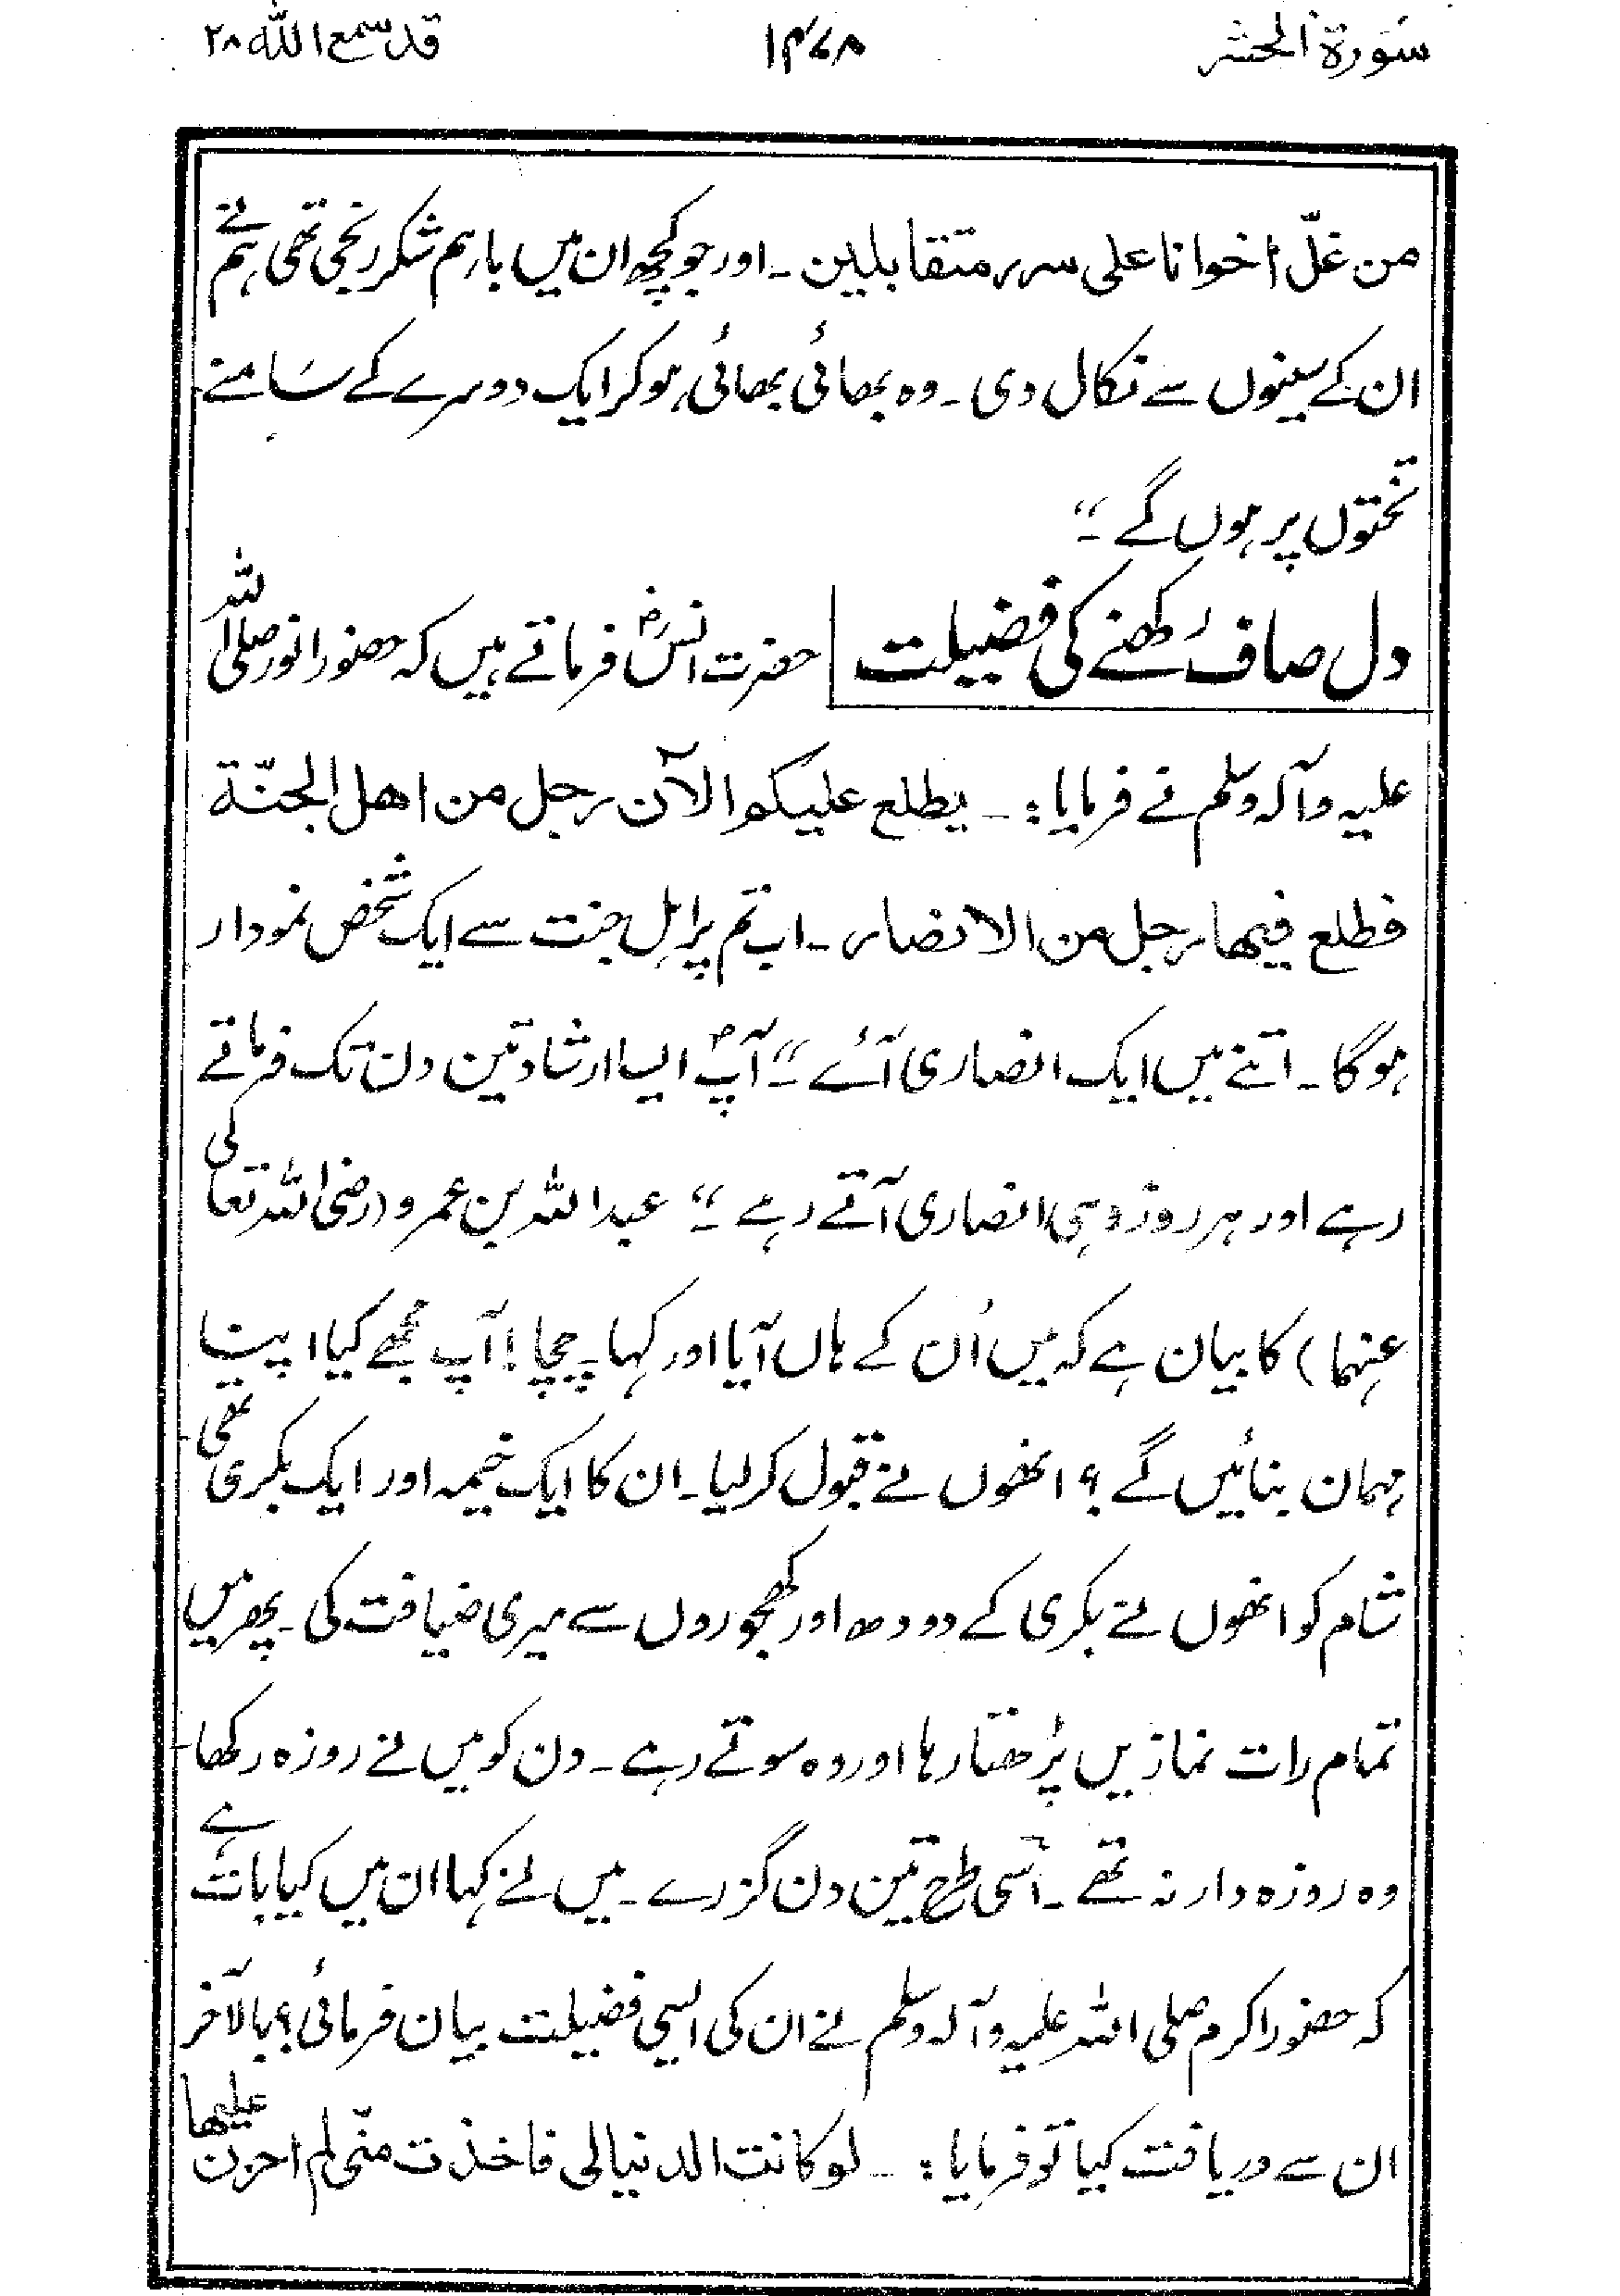 سورة الحشر ۱۴۷۸ قد سمع الله ۲۸
من غلّ اخوانا علی سرر متقابلین۔ اور جو کچھ ان میں باہم شکر رنجی تھی ہم نے
ان کے سینوں سے نکال دی۔ وہ بھائی بھائی ہو کر ایک دوسرے کے سامنے
تختوں پر ہوں گے۔“
دل صاف رکھنے کی فضیلت حضرت انسؓ فرماتے ہیں کہ حضور انور صلی اللہ
علیہ وآلہ وسلم نے فرمایا :۔ یطلع علیکم الآن رجل من اھل الجنّة
فطلع فیھا رجل من الانصار۔ اب تم پر اہل جنت سے ایک شخص نمودار
ہوگا۔ اتنے میں ایک انصاری آئے۔“ آپؐ ایسا ارشاد تین دن تک فرماتے
رہے اور ہر روز وہی انصاری آتے رہے۔“ عبداللہ بن عمرو (رضی اللہ تعالی
عنہما) کا بیان ہے کہ میں اُن کے ہاں آیا اور کہا۔ چچا! آپ مجھے کیا اپنا
مہمان بنائیں گے؟ انھوں نے قبول کر لیا۔ ان کا ایک خیمہ اور ایک بکری تھی۔
شام کو انھوں نے بکری کے دودھ اور کھجوروں سے میری ضیافت کی۔ پھر میں
تمام رات نمازیں پڑھتا رہا اور وہ سوتے رہے۔ دن کو میں نے روزہ رکھا۔
وہ روزہ دار نہ تھے۔ اسی طرح تین دن گزرے۔ میں نے کہا ان میں کیا بات ہے
کہ حضور اکرم صلی اللہ علیہ وآلہ وسلم نے ان کی ایسی فضیلت بیان فرمائی؟ بالآخر
ان سے دریافت کیا تو فرمایا :۔ لو کانت الدنیا لی فاخذت منّی لم احزن علیھا